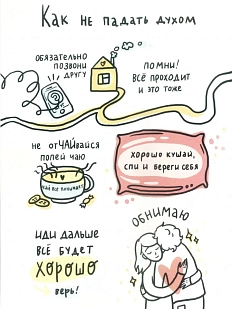 Как не падать духом
обязательно
позвони
другу
помни!
всё проходит
и это тоже
не отЧАЙвайся
попей чаю
чай всё понимает
хорошо кушай,
спи и береги себя
обнимаю
иди дальше
всё будет
хорошо
верь!